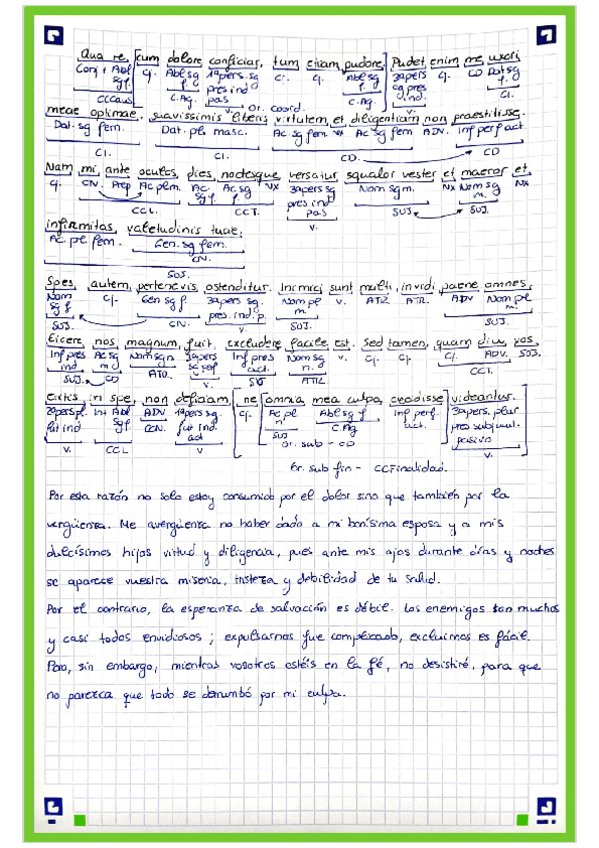 Qua re, [cum dolore conficior, tum etiam pudore.] Pudet enim me uxori
Conj + Abl sg f. Cj. Abl sg f. 1ª pers. sg pres ind pas Cj. Cj. Abl sg f. 3ª pers sg pres. ind. Cj. CD Dat sg f.
CCCaus C.Ag. v. or. coord. C.Ag. v. CI.
meae optimae, suavissimis liberis virtutem et diligentiam non praestitisse.
Dat. sg fem. Dat. pl. masc. Ac. sg fem. Ac sg fem ADV. Inf perf act
CI. CI. CD. CD
Nam mi ante oculos, dies, noctesque versatur squalor vester et maeror et
Cj. Prep Ac plm. Ac. Ac sg f. NX 3ª pers sg pres ind pas Nom sg m. NX Nom sg m. NX
CCL. CCT. v. SUJ. SUJ.
infirmitas valetudinis tuae.
Ac. pl fem. Gen. sg fem.
CN.
Spes autem pertenevis ostenditur. Inimici sunt multi, invidi paene omnes.
Nom sg f Cj. Gen sg f. 3ª pers sg. pres. ind. p. Nom pl m. v. ATR. ATR. ADV Nom pl m.
SUJ. CN. v. SUJ. SUJ.
Eicere nos magnum fuit, excludere facile est. Sed tamen, quam diu vos
Inf pres Ac sg Nom sg n 3ª pers Inf pres act. Nom sg n. v. Cj. Cj. Cj. ADV. SUJ.
SUJ. CD ATR. v. SUJ ATR. CCT.
eritis in spe, non deficiam, [ne [omnia mea culpa cecidisse] videantur.]
2ª pers pl. fut ind Abl sg f. ADV 1ª pers sg. fut ind. act Cj. Ac pl n Abl sg f Inf perf. act. 3ª pers. plur pres subjunt. pasivo
v. CCL v. SUJ C. Ag v.
Or. sub - CD
Or. sub fin - CCFinalidad.
Por esta razón no solo estoy consumido por el dolor sino que también por la
vergüenza. Me avergüenza no haber dado a mi bonísima esposa y a mis
dulcísimos hijos virtud y diligencia, pues ante mis ojos durante días y noches
se aparece vuestra miseria, tristeza y debilidad de tu salud.
Por el contrario, la esperanza de salvación es débil. Los enemigos son muchos
y casi todos envidiosos; expulsarnos fue complicado, excluirnos es fácil.
Pero, sin embargo, mientras vosotros estéis en la fé, no desistiré, para que
no parezca que todo se derrumbó por mi culpa.